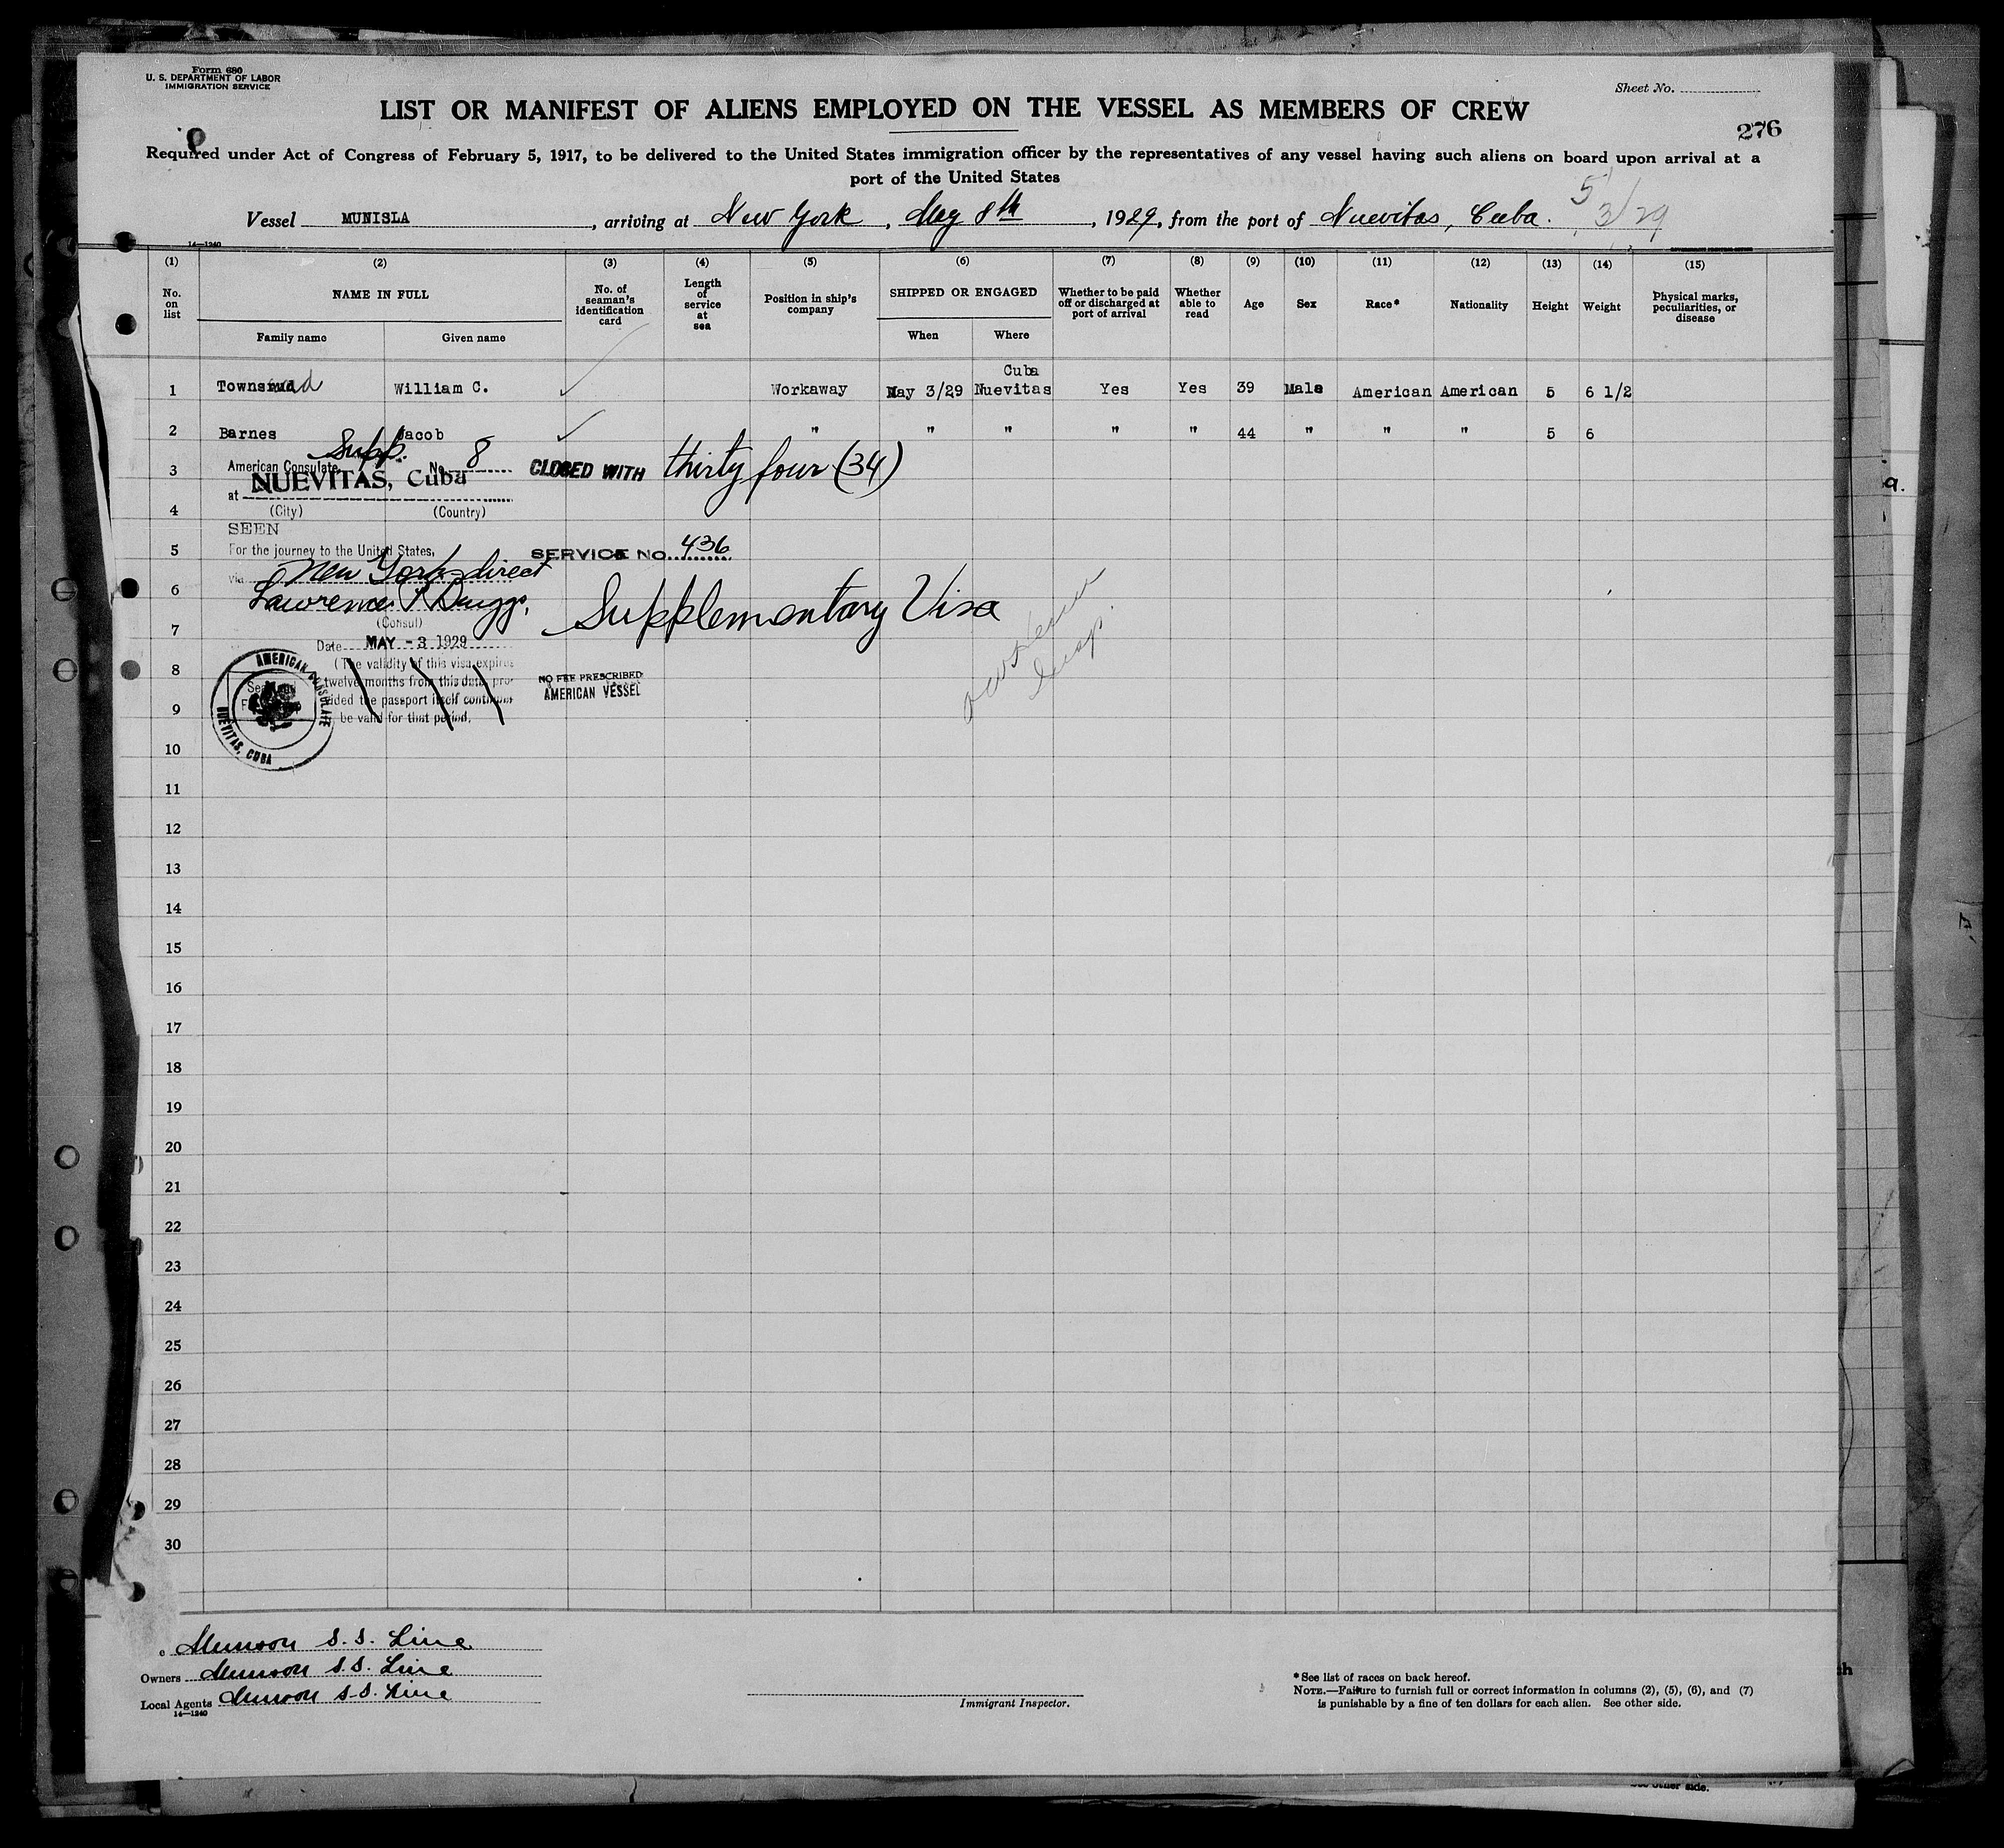 Form 680
U. S. DEPARTMENT OF LABOR
IMMIGRATION SERVICE
Sheet No.
LIST OR MANIFEST OF ALIENS EMPLOYED ON THE VESSEL AS MEMBERS OF CREW
276
Required under Act of Congress of February 5, 1917, to be delivered to the United States immigration officer by the representatives of any vessel having such aliens on board upon arrival at a
port of the United States
Vessel MUNISLA, arriving at New York, May 8th, 1929, from the port of Nuevitas, Cuba. 5/3/29
14—1240
(1) (2) (3) (4) (5) (6) (7) (8) (9) (10) (11) (12) (13) (14) (15)
No. on list
NAME IN FULL
Family name Given name
No. of seaman's identification card
Length of service at sea
Position in ship's company
SHIPPED OR ENGAGED
When Where
Whether to be paid off or discharged at port of arrival
Whether able to read
Age Sex Race* Nationality Height Weight
Physical marks, peculiarities, or disease
Cuba
1 Townsend William C. Workaway May 3/29 Nuevitas Yes Yes 39 Male American American 5 6 1/2
2 Barnes Jacob " " " " " 44 " " " 5 6
Supp.
3 American Consulate, No. 8 CLOSED WITH thirty four (34)
at NUEVITAS, Cuba
4 (City) (Country)
SEEN
5 For the journey to the United States, SERVICE NO. 436
via New York direct
6 Lawrence P. Briggs, Supplementary Visa
7 (Consul)
Date MAY - 3 1929
8 (The validity of this visa expires
twelve months from this date, pro-
vided the passport itself continues
9 be valid for that period.
NO FEE PRESCRIBED
AMERICAN VESSEL
AMERICAN CONSULATE
NUEVITAS, CUBA
10
11
12
13
14
15
16
17
18
19
20
21
22
23
24
25
26
27
28
29
30
Munson S.S. Line
Owners Munson S.S. Line
Local Agents Munson S.S. Line
14—1240
Immigrant Inspector.
* See list of races on back hereof.
NOTE.—Failure to furnish full or correct information in columns (2), (5), (6), and (7)
is punishable by a fine of ten dollars for each alien. See other side.
See other side.